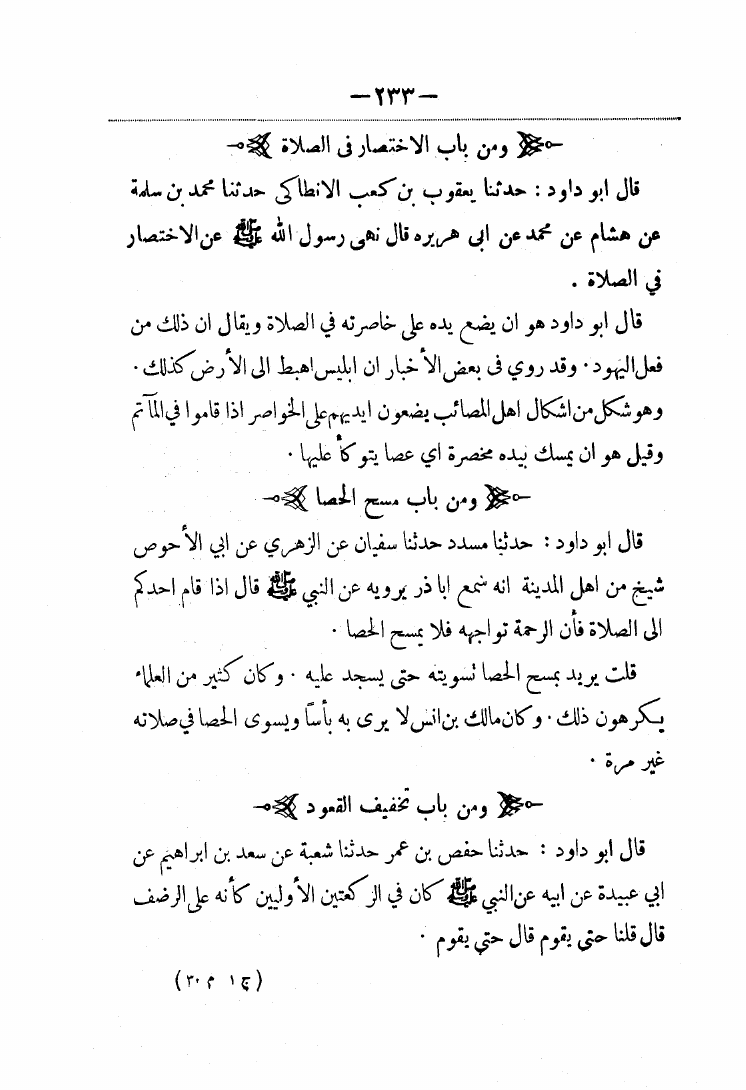 — ٢٣٣ —
ومن باب الاختصار فى الصلاة
قال ابو داود : حدثنا يعقوب بن كعب الانطاكى حدثنا محمد بن سلمة
عن هشام عن محمد عن ابى هريره قال نهى رسول الله ﷺ عن الاختصار
في الصلاة .
قال ابو داود هو ان يضع يده على خاصرته في الصلاة ويقال ان ذلك من
فعل اليهود · وقد روي فى بعض الأخبار ان ابليس اهبط الى الأرض كذلك ·
وهو شكل من اشكال اهل المصائب يضعون ايديهم على الخواصر اذا قاموا في المآتم
وقيل هو ان يمسك بيده مخصرة اي عصا يتوكأ عليها ·
ومن باب مسح الحصا
قال ابو داود : حدثنا مسدد حدثنا سفيان عن الزهري عن ابي الأحوص
شيخ من اهل المدينة انه سمع ابا ذر يرويه عن النبي ﷺ قال اذا قام احدكم
الى الصلاة فأن الرحمة تواجهه فلا يمسح الحصا ·
قلت يريد بمسح الحصا تسويته حتى يسجد عليه · وكان كثير من العلماء
يكرهون ذلك · وكان مالك بن انس لا يرى به بأسًا ويسوى الحصا في صلاته
غير مرة ·
ومن باب تخفيف القعود
قال ابو داود : حدثنا حفص بن عمر حدثنا شعبة عن سعد بن ابراهيم عن
ابي عبيدة عن ابيه عن النبي ﷺ كان في الركعتين الأوليين كأنه على الرضف
قال قلنا حتى يقوم قال حتى يقوم ·
(ج ١ م ٣٠)